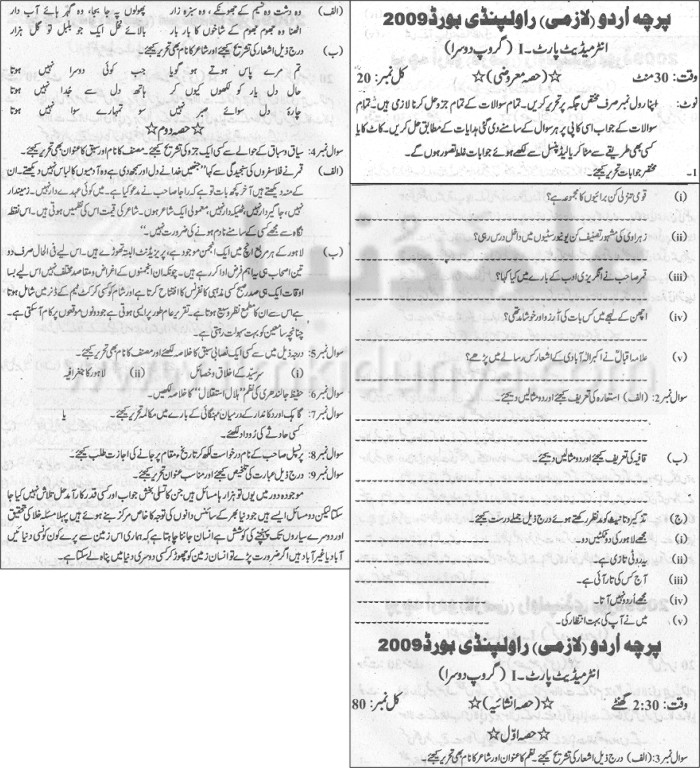 پرچہ اُردو (لازمی) راولپنڈی بورڈ 2009
انٹرمیڈیٹ پارٹ-I (گروپ دوسرا)
وقت: 30 منٹ ☆ (حصہ معروضی) ☆ کل نمبر: 20
نوٹ: اپنا رول نمبر صرف مختص جگہ پر تحریر کریں۔ تمام سوالات کے تمام جزو حل کرنا لازمی ہیں۔ تمام
سوالات کے جواب اسی کاپی پر ہر سوال کے سامنے دی گئی ہدایات کے مطابق حل کریں۔ کاٹ کر یا
کسی بھی طریقے سے مٹا کر یا لیڈ پنسل سے لکھے ہوئے جوابات غلط تصور ہوں گے۔
1۔ مختصر جوابات تحریر کیجئے۔
(i) قومی تنزلی کن برائیوں کا مجموعہ ہے؟
(ii) زہراوی کی مشہور تصنیف کن یونیورسٹیوں میں داخل درس رہی؟
(iii) قمر صاحب نے انگریزی ادب کے بارے میں کیا کہا؟
(iv) اچھن کے لہجے میں کس بات کی آرزو اور خوشامد تھی؟
(v) علامہ اقبال نے اکبر الٰہ آبادی کے اشعار کس رسالے میں پڑھے؟
سوال نمبر 2: (الف) استعارہ کی تعریف کیجئے اور دو مثالیں دیجئے۔
(ب) قافیہ کی تعریف کیجئے اور دو مثالیں دیجئے۔
(ج) تذکیر و تانیث کو مدنظر رکھتے ہوئے درج ذیل جملے درست کیجئے۔
(i) مجھے لاہور کی دو ٹکٹیں دو۔
(ii) یہ روٹی تازی ہے۔
(iii) آج کس کی تار آئی ہے۔
(iv) مجھے اُردو نہیں آتا۔
(v) میں نے آپ کی بہت انتظار کی۔
پرچہ اُردو (لازمی) راولپنڈی بورڈ 2009
انٹرمیڈیٹ پارٹ-I (گروپ دوسرا)
وقت: 2:30 گھنٹے ☆ (حصہ انشائیہ) ☆ کل نمبر: 80
☆ حصہ اوّل ☆
سوال نمبر 3: (الف) درج ذیل اشعار کی تشریح کیجئے۔ نظم کا عنوان اور شاعر کا نام بھی تحریر کیجئے۔
(الف) وہ دشت وہ نسیم کے جھونکے، وہ سبزہ زار پھولوں پہ جا بجا، وہ گہر ہائے آب دار
اٹھنا وہ جھوم جھوم کے شاخوں کا بار بار بالائے نخل ایک جو بلبل تو گل ہزار
(ب) درج ذیل اشعار کی تشریح کیجئے اور شاعر کا نام بھی تحریر کیجئے۔
تم مرے پاس ہوتے ہو گویا جب کوئی دوسرا نہیں ہوتا
حال دل یار کو لکھوں کیوں کر ہاتھ دل سے جدا نہیں ہوتا
چارۂ دل سوائے صبر نہیں تمہارے سوا نہیں ہوتا
☆ حصہ دوم ☆
سوال نمبر 4: سیاق و سباق کے حوالے سے کسی ایک جزو کی تشریح کیجئے۔ مصنف کا نام اور سبق کا عنوان بھی تحریر کیجئے۔
(الف) قمر نے فلاسفروں کی سنجیدگی سے کہا "جنھیں خدا نے دل اور سمجھ دی ہے وہ آدمیوں کا لباس نہیں دیکھتے۔ ان
کے
(ب) لاہور کے ہر مربع انچ میں ایک انجمن موجود ہے، پریذیڈنٹ البتہ تھوڑے ہیں۔ اس لیے فی الحال صرف دو
تین اصحاب ہی یہ اہم فرض ادا کر رہے ہیں۔ چونکہ ان انجمنوں کے اغراض و مقاصد مختلف نہیں اس لیے بسا
اوقات ایک ہی صدر صبح کسی مذہبی کانفرنس کا افتتاح کرتا ہے اور شام کو کسی کرکٹ ٹیم کے ڈنر میں شامل ہوتا
ہے اس سے ان کا مطمح نظر وسیع ہوتا ہے۔ تقریر عام طور پر ایسی ہوتی ہے جو دونوں موقعوں پر کام آ سکتی ہے۔
چنانچہ سامعین کو بہت سہولت رہتی ہے۔
سوال نمبر 5: درجہ ذیل میں سے کسی ایک نصابی سبق کا خلاصہ لکھئے اور مصنف کا نام بھی تحریر کیجئے۔
(i) سرسید کے اخلاق و خصائل (ii) لاہور کا جغرافیہ
سوال نمبر 6: حفیظ جالندھری کی نظم "ہلال استقلال" کا خلاصہ لکھیں۔
سوال نمبر 7: گاہک اور دکاندار کے درمیان مہنگائی کے بارے میں مکالمہ تحریر کیجئے۔ یا
کسی حادثے کی روداد لکھئے۔
سوال نمبر 8: پرنسپل صاحب کے نام درخواست لکھ کر تاریخی مقام پر جانے کی اجازت طلب کیجئے۔
سوال نمبر 9: درج ذیل عبارت کی تلخیص کیجئے اور مناسب عنوان تحریر کیجئے۔
موجودہ دور میں یوں تو ہزارہا مسائل ہیں جن کا تسلی بخش جواب اور کسی قدر کارآمد حل تلاش نہیں کیا جا
سکتا لیکن دو مسائل ایسے ہیں جو دنیا بھر کے سائنس دانوں کی توجہ کا خاص مرکز بنے ہوئے ہیں پہلا مسئلہ خلا کی تحقیق
اور دوسرے سیاروں تک پہنچنے کی کوشش ہے انسان جاننا چاہتا ہے کہ ہماری اس زمین سے پرے کون کون سی دنیائیں
آباد یا غیر آباد ہیں اگر ضرورت پڑے تو انسان زمین کو چھوڑ کر کسی دوسری دنیا میں پناہ لے سکتا ہے۔